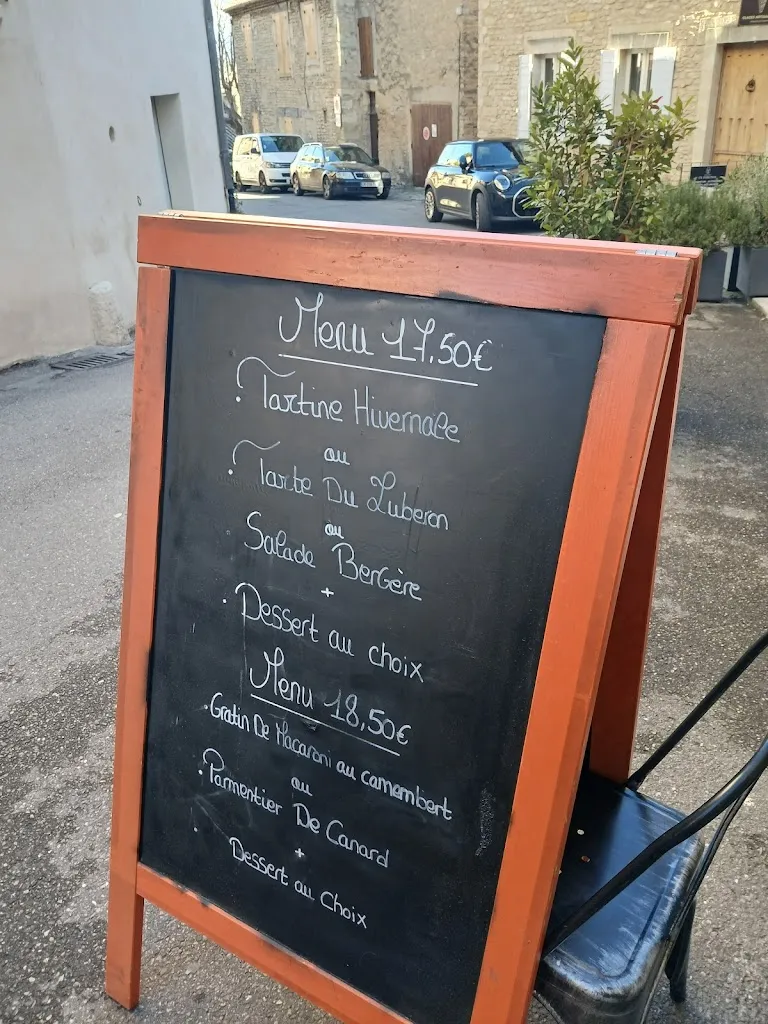 Menu 17.50€
. Tartine Hivernale
ou
. Tarte Du Luberon
ou
Salade Bergère
+
. Dessert au choix
Menu 18,50€
. Gratin De Macaroni au camembert
ou
. Parmentier De Canard
+
Dessert au Choix